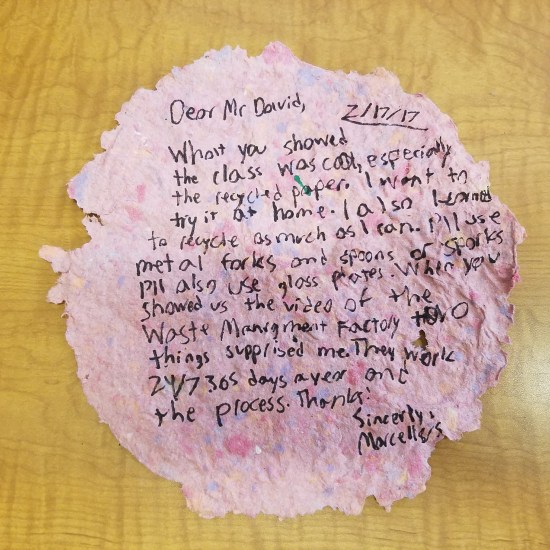 Dear Mr David,
2/17/17
What you showed
the class was cool, especially
the recycled paper. I want to
try it at home. I also learned
to recycle as much as I can. I'll use
metal forks and spoons or sporks
I'll also use glass plates. When you
showed us the video of the
Waste Managment Factory two
things supprised me. They work
24/7 365 days a year and
the process. Thanks!
Sincerly,
Marcellis S.